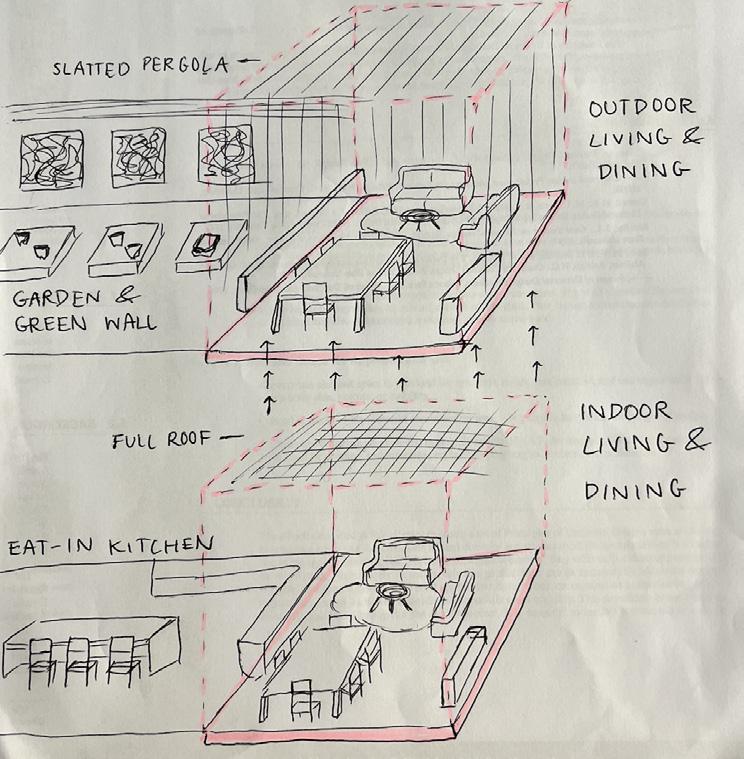 SLATTED PERGOLA
OUTDOOR
LIVING &
DINING
GARDEN &
GREEN WALL
FULL ROOF
INDOOR
LIVING &
DINING
EAT-IN KITCHEN